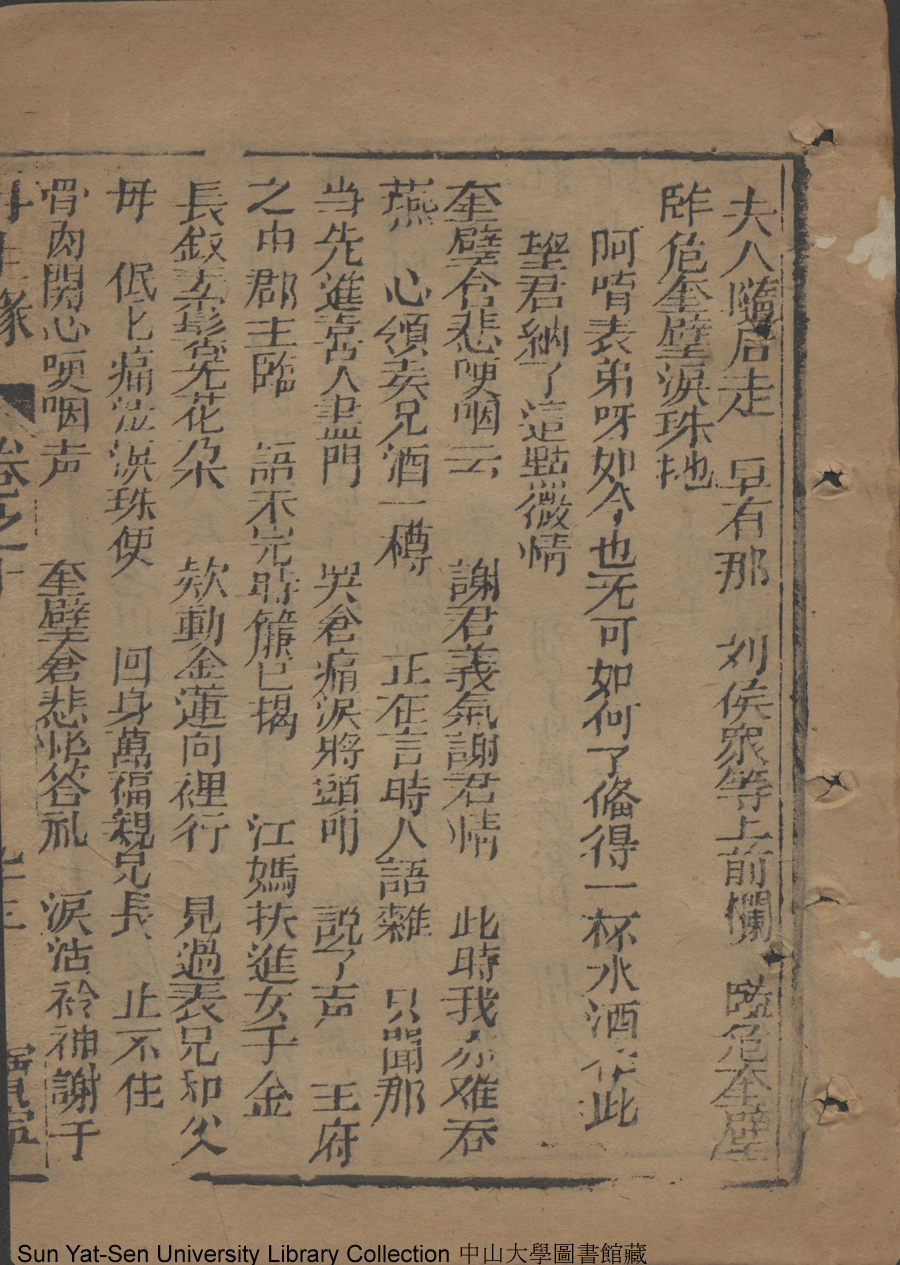 夫人隨后走　早有那　刘侯衆等上前欄　臨危奎璧
危奎璧淚珠拋
阿唷表弟呀如今也无可如何了俻得一杯水酒在此
望君納了這點微情
奎璧含悲哽咽云　謝君義氣謝君情　此時我亦难吞
燕　心領表兄酒一樽　正在言時人語雜　只聞那
当先進一人　哭倉痛淚將頭叩　說了声　王府
之中郡主臨　語未完時簾已揭　江媽扶進女千金
長釵素髻无花朵　欵動金蓮向裡行　見過表兄和父
毋　低七痛泣淚珠使　回身萬福親兄長　止不住
骨肉関心哽咽声　奎璧倉悲忙答礼　淚沾神謝于
再生緣　卷之十　七十三　寳寧
Sun Yat-Sen University Library Collection 中山大學圖書館藏